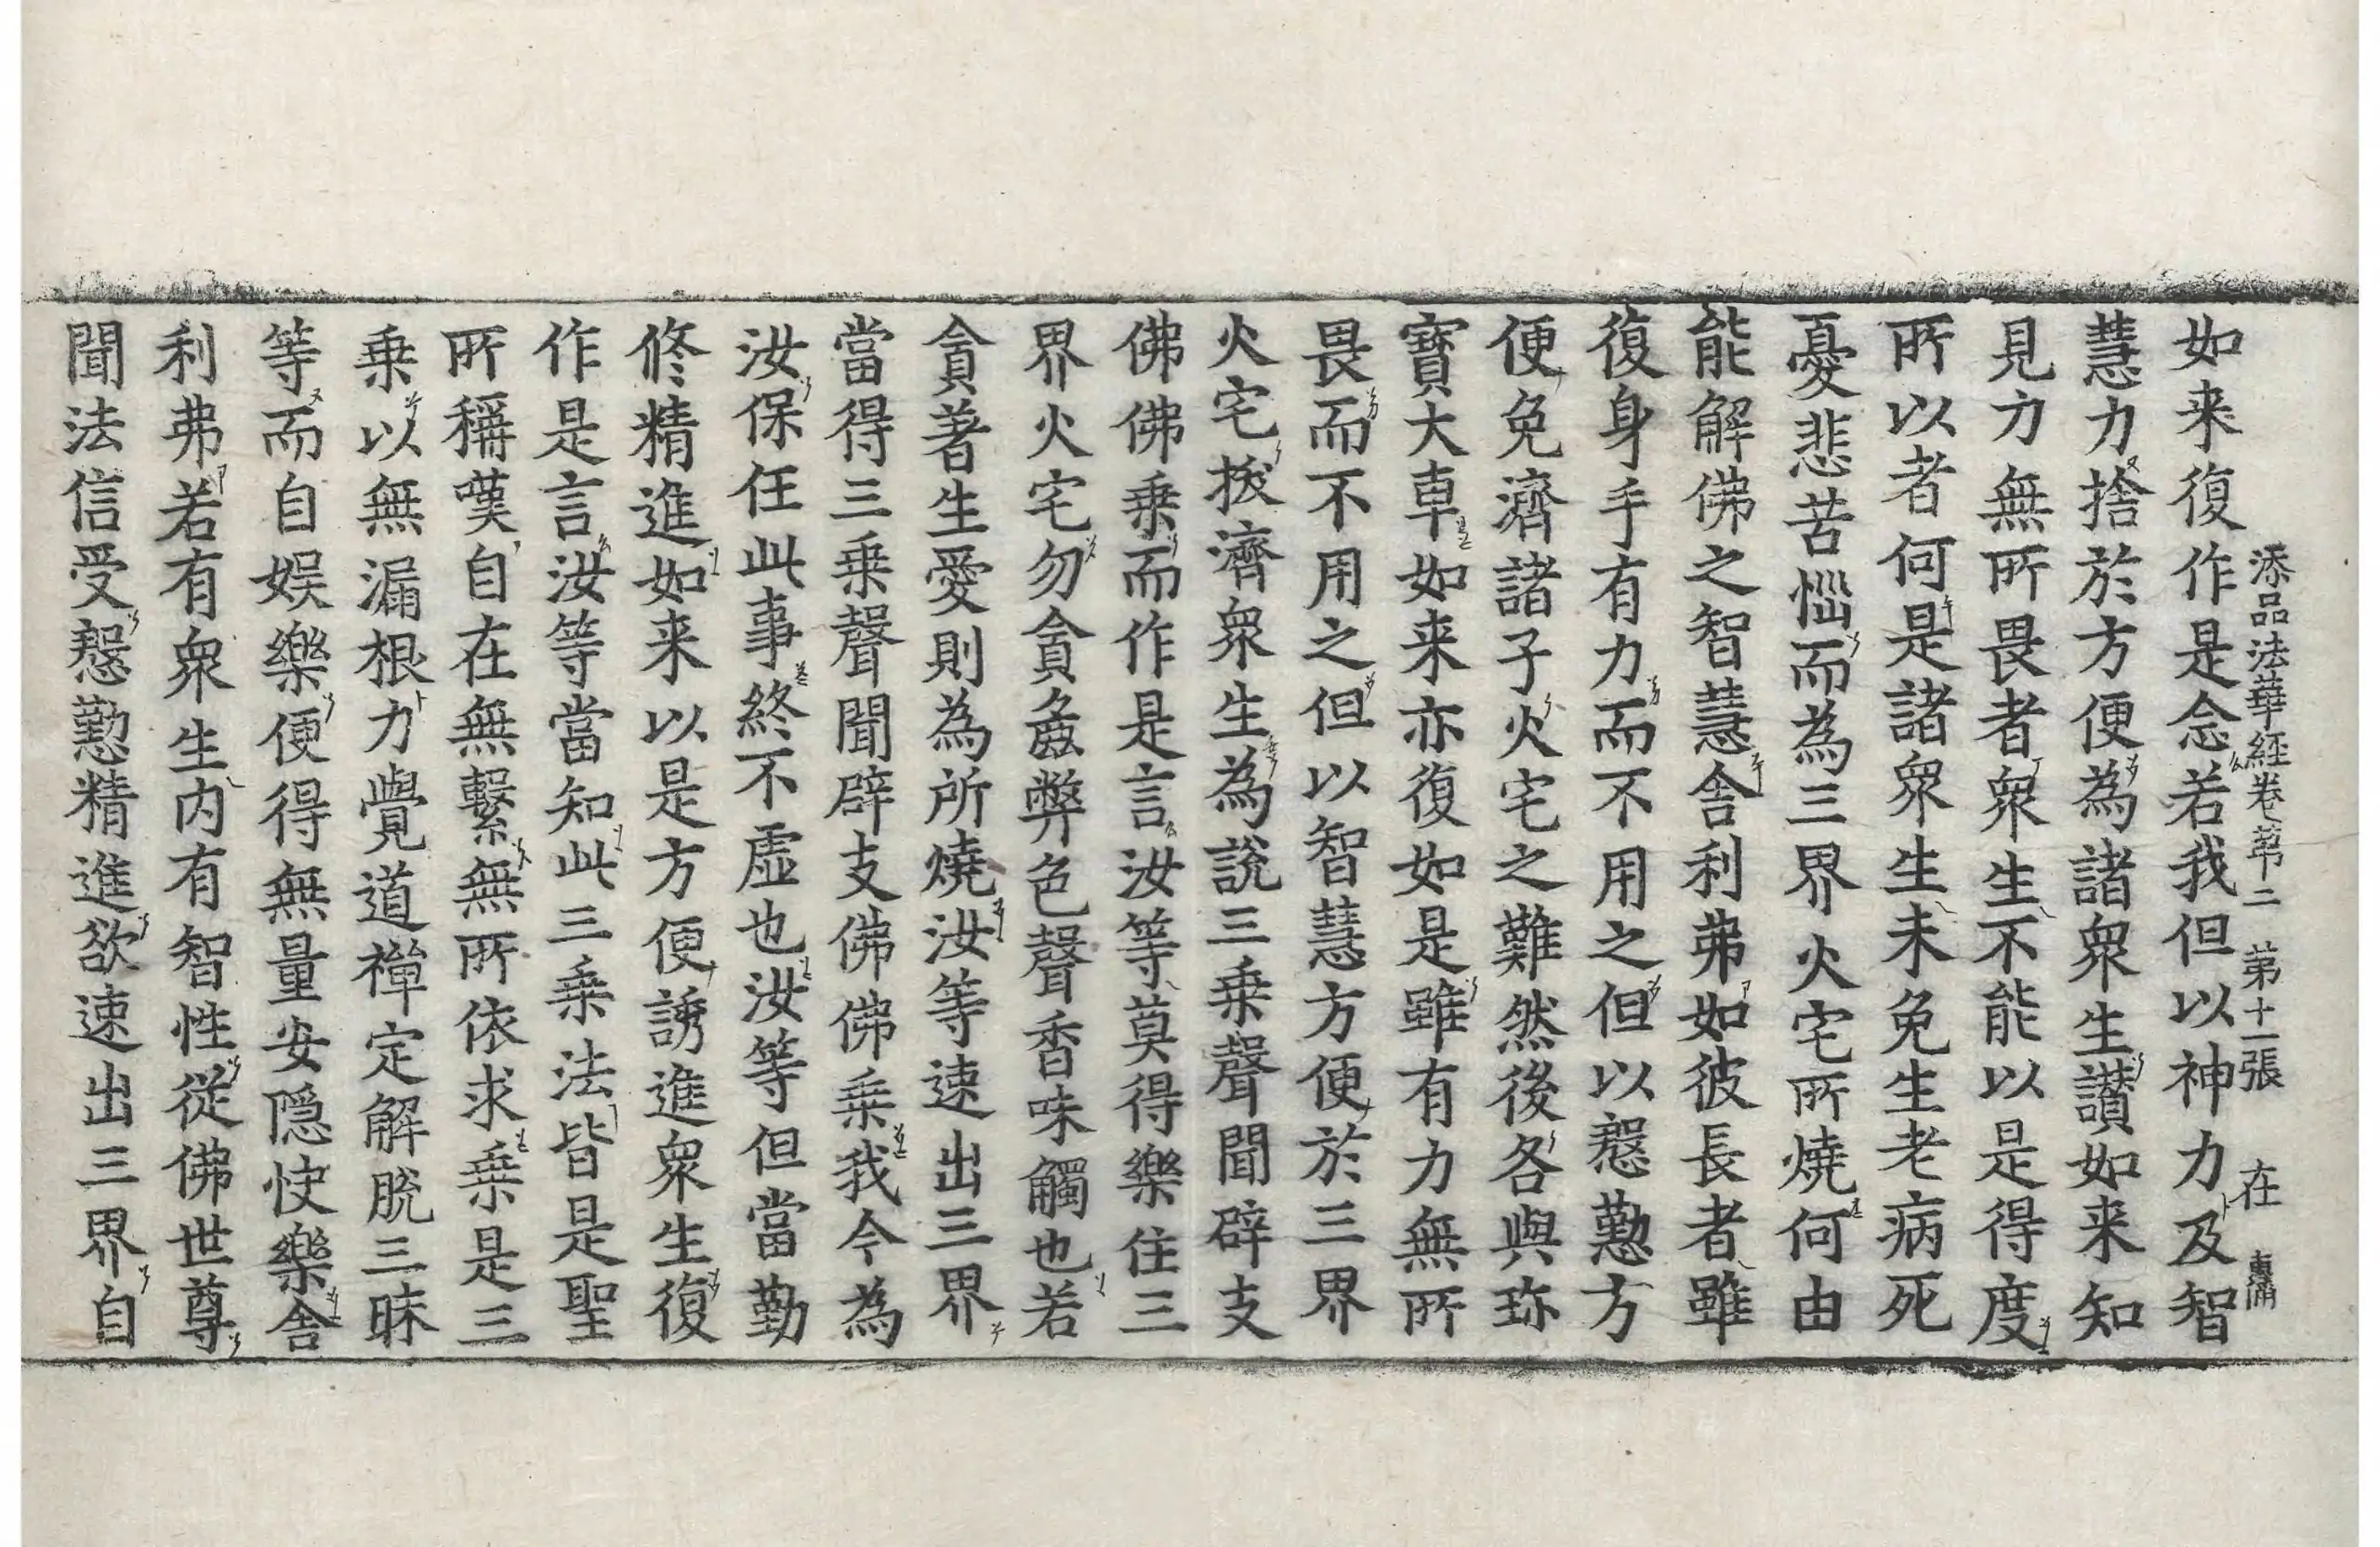 添品法華経卷苐二　苐十一張　在
如来復作是念若我但以神力及智
慧力捨於方便為諸衆生讃如来知
見力無所畏者衆生不能以是得度
所以者何是諸衆生未免生老病死
憂悲苦惱而為三界火宅所燒何由
能解佛之智慧舎利弗如彼長者雖
復身手有力而不用之但以慇懃方
便免濟諸子火宅之難然後各與珎
寳大車如来亦復如是雖有力無所
畏而不用之但以智慧方便於三界
火宅拔濟衆生為說三乗聲聞辟支
佛佛乗而作是言汝等莫得樂住三
界火宅勿貪麁弊色聲香味觸也若
貪著生愛則為所燒汝等速出三界
當得三乗聲聞辟支佛佛乗我今為
汝保任此事終不虛也汝等但當勤
修精進如来以是方便誘進衆生復
作是言汝等當知此三乗法皆是聖
所稱嘆自在無繫無所依求乗是三
乗以無漏根力覺道禪定解脫三昧
等而自娱樂便得無量安隠快樂舎
利弗若有衆生内有智性從佛世尊
聞法信受慇懃精進欲速出三界自